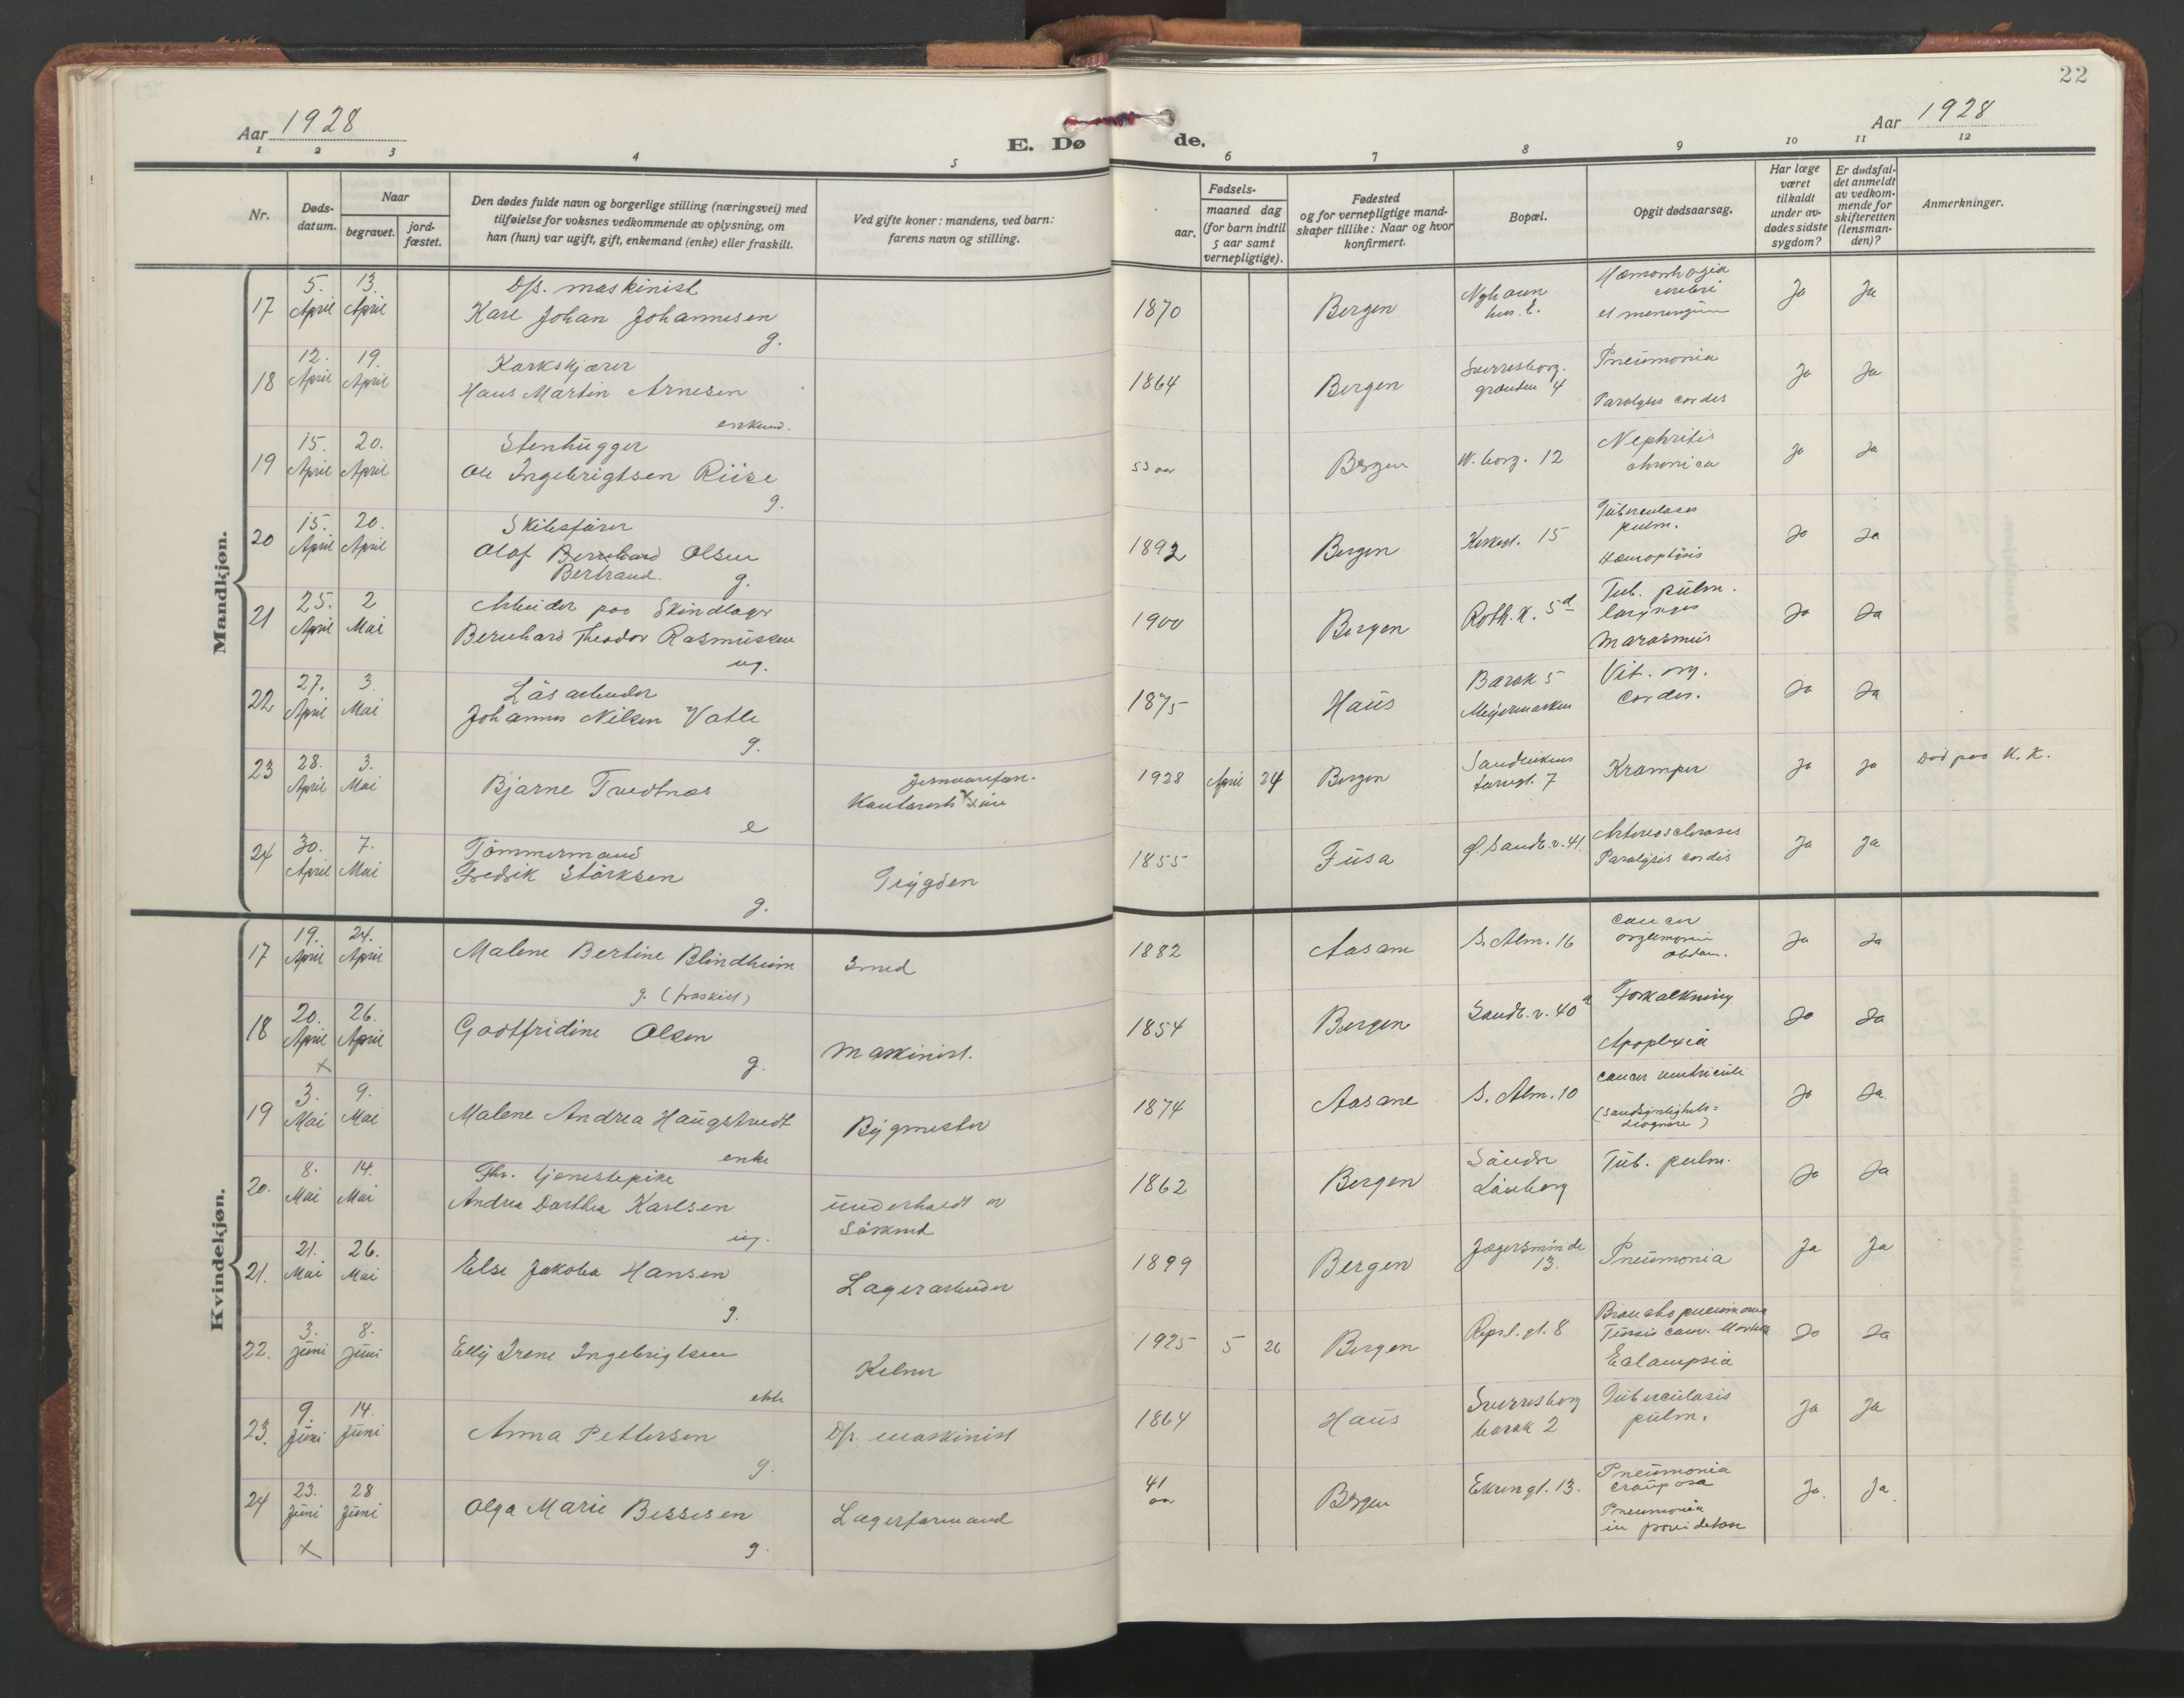 22
Aar 1928
E. Dø de.
Aar 1928
1 2 3 4 5 6 7 8 9 10 11 12
Nr.
Døds-
datum.
Naar
begravet.
jord-
fæstet.
Den dødes fulde navn og borgerlige stilling (næringsvei) med
tilføielse for voksnes vedkommende av oplysning, om
han (hun) var ugift, gift, enkemand (enke) eller fraskilt.
Ved gifte koner: mandens, ved barn:
farens navn og stilling.
Fødsels-
aar.
maaned dag
(for barn indtil
5 aar samt
vernepligtige).
Fødested
og for vernepligtige mand-
skaper tillike: Naar og hvor
konfirmert.
Bopæl.
Opgit dødsaarsag.
Har læge
været
tilkaldt
under av-
dødes sidste
sygdom?
Er dødsfal-
det anmeldt
av vedkom-
mende for
skifteretten
(lensman-
den)?
Anmerkninger.
Mandkjøn.
17 5. April 13. April
D/s. maskinist
Karl Johan Johannesen
g.
1870 Bergen
hus. E.
cerebri
Ja Ja
18 12. April 19. April
Hans Martin Arnesen
enkem.
1864 Bergen
Sverresborg.
4
Pneumonia
Paralysis cordis
Ja Ja
19 15. April 20. April
Stenhugger
Ole Ingebrigtsen Riise
g.
53 aar Bergen
W. borg. 12
Nephritis
chronica
Ja Ja
20 15. April 20. April
Skibsfører
Olaf Bernhard Olsen
Bertrand. g.
1892 Bergen
15
Tuberculoses
pulm.
Hæmoptisis
Ja Ja
21 25. April 2 Mai
Arbeider paa Skindlager
Bernhard Theodor Rasmussen
ug.
1900 Bergen
Roth. K. 5d
Tub. pulm.
laryngis
Marasmus
Ja Ja
22 27. April 3 Mai
Løsarbeider
Johannes Nilsen Vatle
g.
1875 Haus
Barak 5
Meyermarken
Vit. org.
Cordis.
Ja Ja
23 28. April 3. Mai
Bjarne Tvedtnæs
e
1928 April 24 Bergen
7
Kramper
Ja Ja
Død paa K. K.
24 30. April 7. Mai
Tømmermand
Fredrik Størksen
g.
Trygden
1855 Fusa
Sandv. v. 41.
Arteriosclerosis
Paralysis cordis
Ja Ja
Kvindekjøn.
17 19. April 24. April
Malene Bertine Blindheim
g. (fraskilt)
Smed
1882 Aasane
S. Alm. 16
Cancer
abdom.
Ja Ja
18 20. April 26. April
x
Godtfridine Olsen
g.
Maskinist.
1854 Bergen
Sandv. v. 40a
Forkalkning
Apoplexia
Ja Ja
19 3. Mai 9. Mai
Malene Andrea Haugstvedt
enke
Bygmester
1874 Aasane
S. Alm. 10
Cancer ventriculi
(Sandsynligheds=
diagnose)
Ja Ja
20. 8. Mai 14. Mai
Fhv. tjenestepike
Andrea Dorthea Karlsen
ug.
underholdt av
Søskend
1862 Bergen
Søndre
Lønborg
Tub. pulm.
Ja Ja
21. 21. Mai 26. Mai
Else Jakoba Hansen
g.
Lagerarbeider
1899 Bergen
Jægersminde
13.
Pneumonia
Ja Ja
22. 3. Juni 8. Juni
Elly Irene Ingebrigtsen
ekte
Kelner
1925 5 26 Bergen
Repsl. gt. 8
Bronchopneumonia
Eclampsia
Ja Ja
23. 9. Juni 14. Juni
Anna Pettersen
g.
D/s. maskinist
1864 Haus
Sverresborg
barak 2
Tuberculosis
pulm.
Ja Ja
24 23. Juni 28 Juni
x
Olga Marie Bessesen
g.
Lagerformand
41 aar Bergen
Ekren gt. 13.
Pneumonia
crouposa
Pneumonia
Ja. Ja.